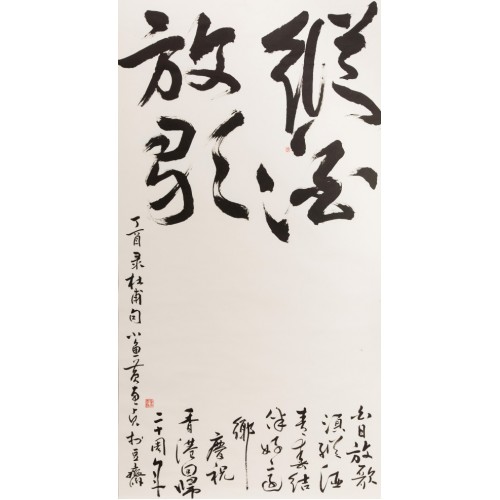 縱酒
放歌
白日放歌
須縱酒
青春結
伴好還
鄉
慶祝
香港回歸
二十周年
丁酉录杜甫句